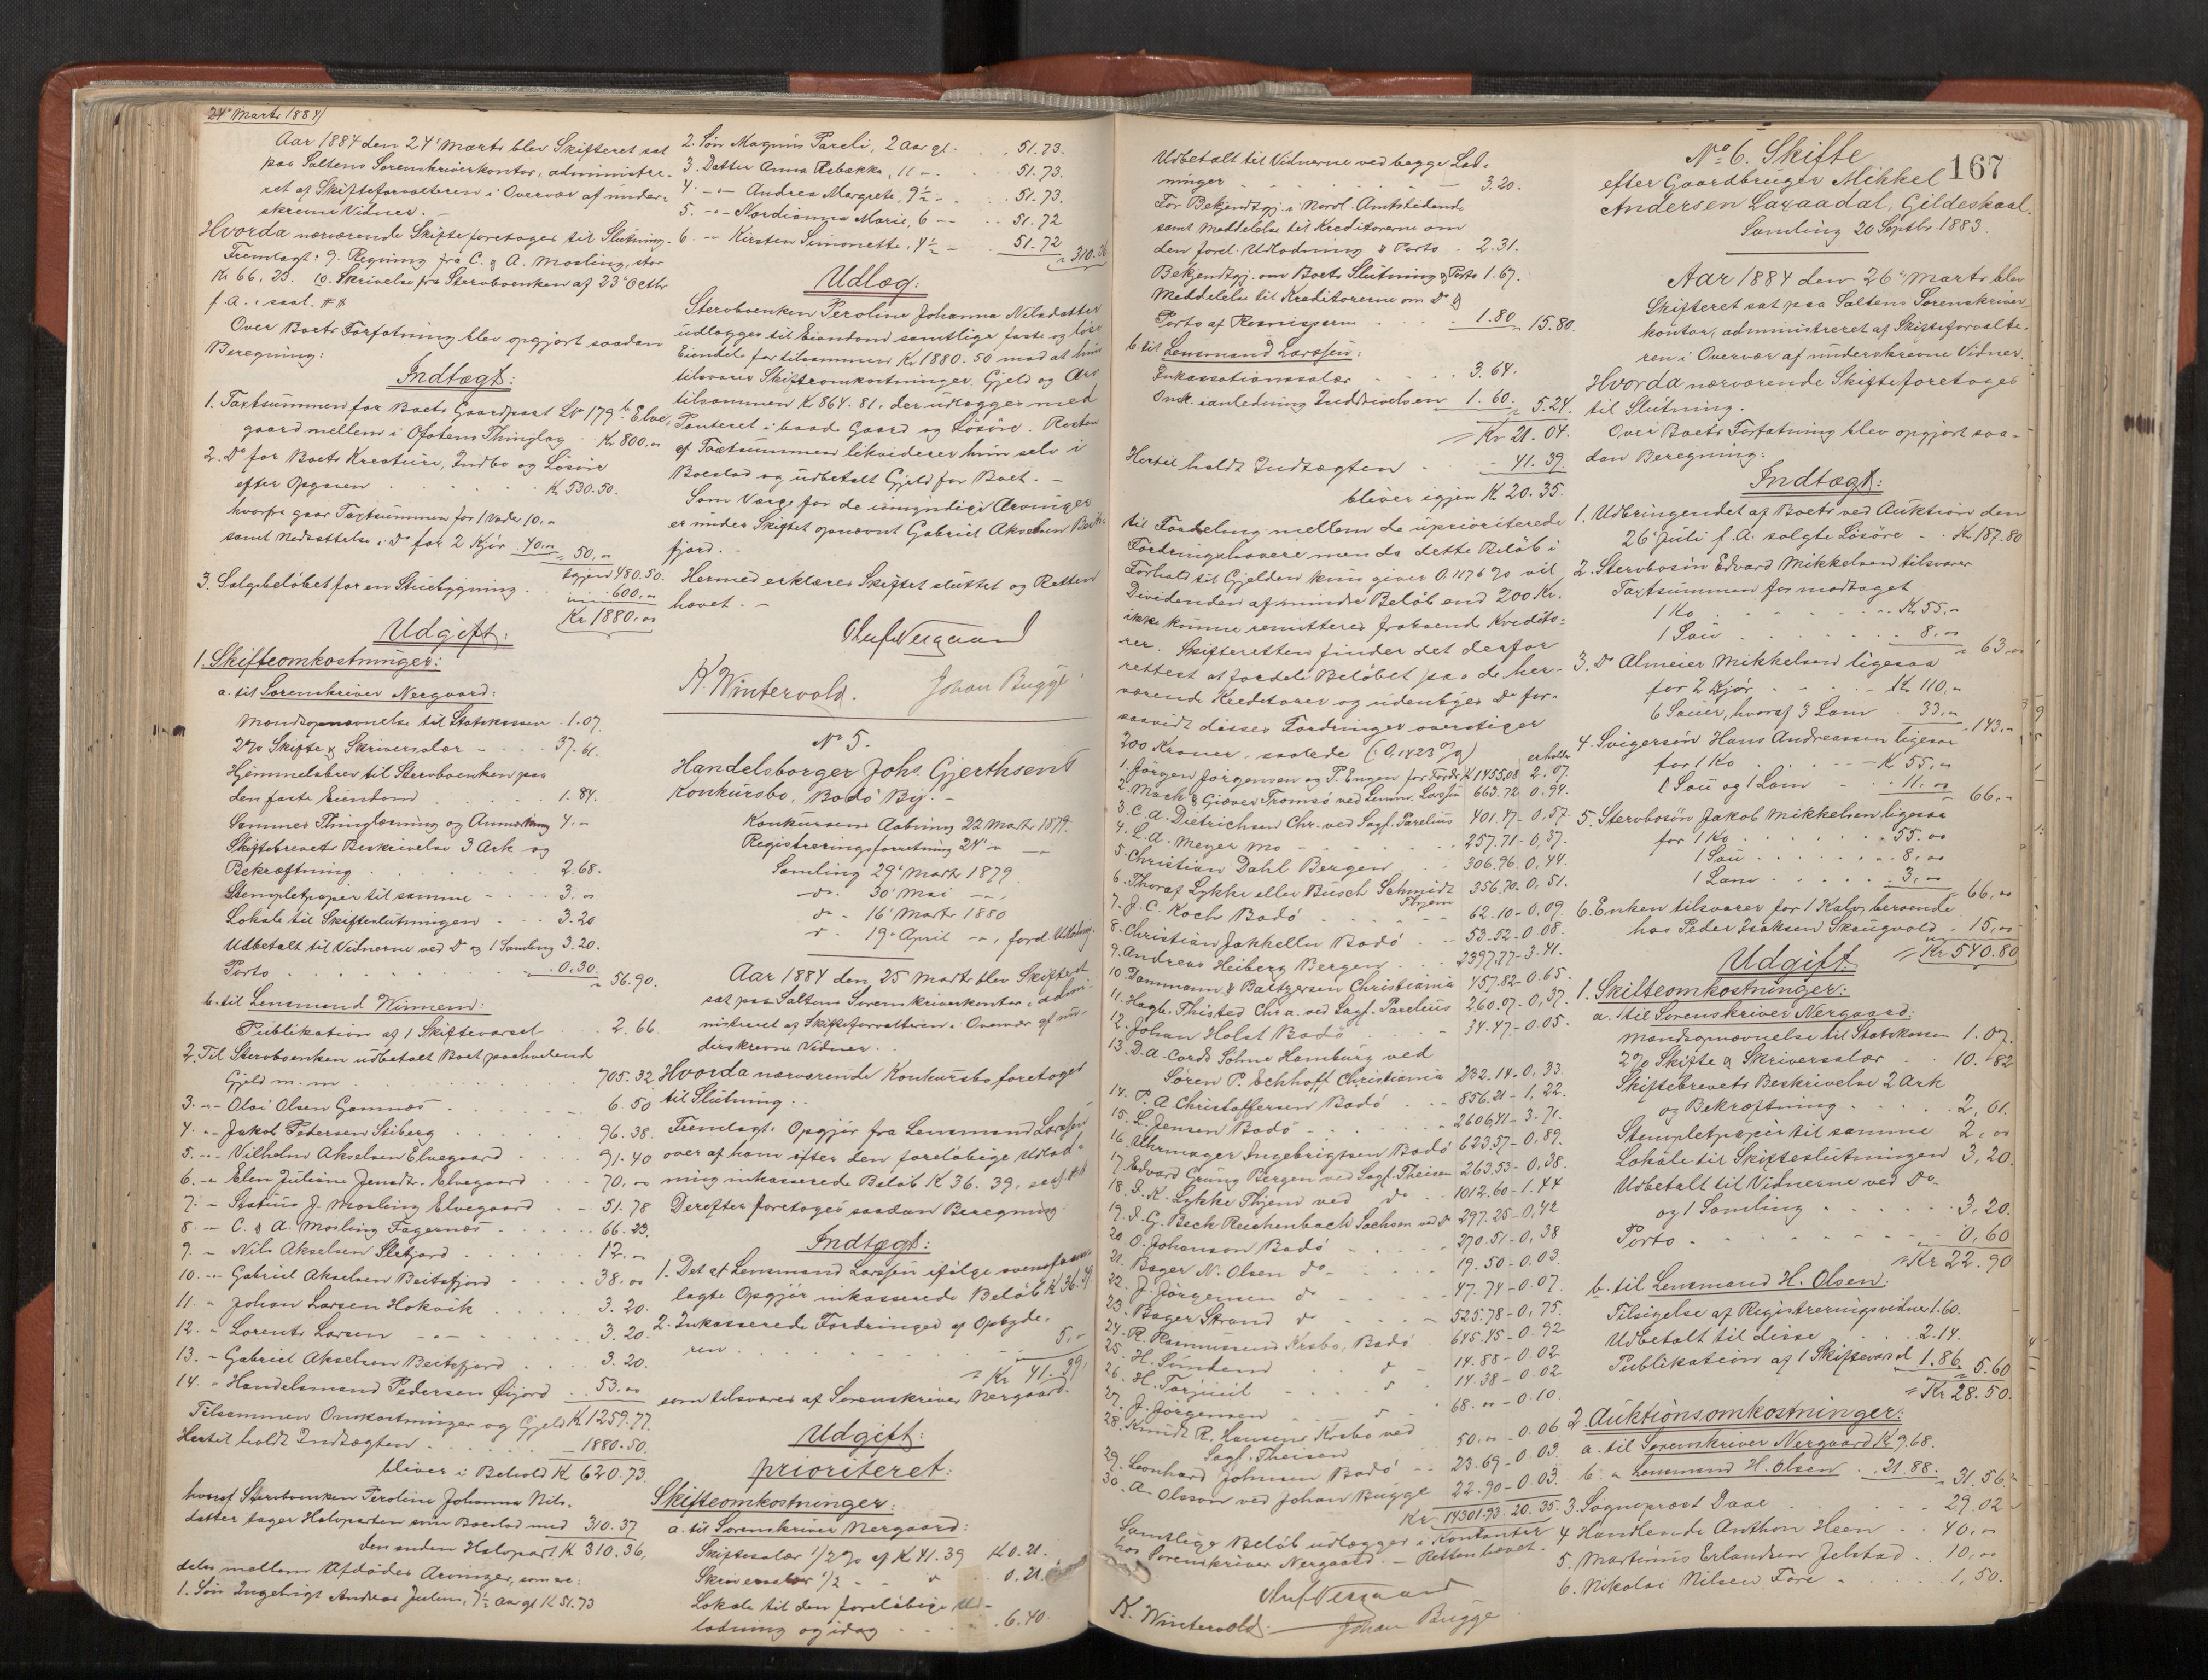 24' Marts 1884
Aar 1884 den 24' Marts blev Skifteret sat
paa Saltens Sorenskriverkontor, administre-
ret af Skifteforvalteren i Overvær af under-
skrevne Vidner. -
Hvorda nærværende Skifte foretoges til Slutning.
Fremlagt: 9. Regning fra C. & A. Mosling, stor
Kr 66.23. 10. Skrivelse fra Stervboenken af 23' Octbr
f. A.
Over Boets Forfatning blev opgjort saadan
Beregning:
Indtægt:
1. Taxtsummen for Boets Gaardpart LNr 179 Elve-
gaard mellem i Ofotens Thinglag - Kr 800,"
2. Do for Boets Kreature, Indbo og Løsøre
efter Opgaven . . . Kr 530.50.
hvorfra gaar Taxtsummen for 1 Vader 10,"
samt Nedsættelse i Do for 2 Kjør 40,"
" 50,"
Igjen 480.50.
3. Salgsbeløbet for en Stuebygning . . 600,"
Kr 1880,"
Udgift:
1. Skifteomkostninger:
a. til Sorenskriver Nergaard:
Mandsopnævnelse til Statskassen . 1.07
2% Skifte & Skriversalær - . . . 37.61.
Hjemmelsbrev til Stervboenken paa
den faste Eiendom . . . 1.84.
Sammes Thinglæsning og Anmærkning 4.-
Skiftebrevets Beskrivelse 3 Ark og
Bekræftning . . . 2.68.
Stempletpapir til samme - . . . 3,"
Lokale til Skifteslutningen . . . 3.20
Udbetalt til Vidnerne ved Do og 1 Samling 3.20.
Porto . . . 0.30.
" 56.90.
b. til Lensmand Winnem:
Publikation af 1 Skiftevarsel . . 2.66.
2. Til Stervboenken udbetalt Boet paahvilende
Gjeld m. m . . . 705.32
3. " - Olai Olsen Gamnæs . . . 6.50
4. " - Jakob Pedersen Stiberg . . . 96.38.
5. " - Vilhelm Akselsen Elvegaard . . . 91.40
6. " Elen Juliane Jensdr. Elvegaard . . . 70,"
7. " J. Mosling Elvegaard . . . 51.78
8. " C. & A. Mosling Fagernæs . . . 66.23.
9. " Nils Akselsen . . . 12,"
10. " Gabriel Akselsen Beitsfjord . . . 38.00
11. " Johan Larsen Hokvik . . . 3.20.
12. " Lorents Larsen -"- . . . 3.20.
13. " Gabriel Akselsen Beitsfjord . . . 3.20.
14. " Handelsmand Pedersen Øijord . . 53.00
Tilsammen Omkostninger og Gjeld Kr 1259.77.
Hertil holdt Indtægten . . . 1880.50.
bliver i Behold Kr 620.73.
hvoraf Stervboenken Peroline Johanna Nils-
datter tager Halvparten som Boeslod med 310.37
den anden Halvpart K 310.36,
deles mellem Afdødes Arvinger, som er:
1. Søn Ingebrigt Andreas Julius, 7½ aar gl K 51.73
2. Søn Magnus Pareli, 2 aar gl. . . 51.73.
3. Datter Anna Rebækka, 11 - . . 51.73.
4. -"- Andrea Margrete, 9½ - . . 51.73.
5. -"- Nordianna Marie, 6 - . . 51.72
6. -"- Kirsten Simonette, 4½ - . 51.72
" 310.36
Udlæg:
Stervboenken Peroline Johanna Nilsdatter
udlægges til Eiendom samtlige faste og løse
Eiendele for tilsammen Kr 1880.50 mod at hun
tilsvarer Skifteomkostninger Gjeld og Arv
tilsammen K 864.81, der udlægges med
Panteret i baade Gaard og Løsøre. Resten
af Taxtsummen likviderer hun selv i
Boeslod og udbetalt Gjeld for Boet. -
Som Værge for de umyndige Arvinger
er under Skiftet opnævnt Gabriel Akselsen Beits-
fjord. -
Hermed erklæres Skiftet sluttet og Retten
hævet. -
Oluf Nergaard
K. Wintervold. Johan Bugge
No 5.
Handelsborger Johs. Gjerthsens
Konkursbo, Bodø By. -
Konkursens Aabning 22 Marts 1879.
Registreringsforretning 24' " -"-
Samling 29' Marts 1879.
do. 30' Mai -"-
do - 16' Marts 1880
do. 19' April -"-, forel. Udlodng.
Aar 1884 den 25 Marts blev Skifteret
sat paa Saltens Sorenskriverkontor, admi-
nistreret af Skifteforvalteren i Overvær af un-
derskrevne Vidner. .
Hvorda nærværende Konkursbo foretoges
til Slutning. .
Fremlagt. Opgjør fra Lensmand Larssen
over af ham efter den foreløbige Udlod-
ning inkasserede Beløb K 36.39,
Derefter foretoges saadan Beregning:
Indtægt:
1. Det af Lensmand Larssen ifølge ovenfor frem-
lagte Opgjør inkasserede Beløb K 36.39
2. Inkasserede Fordringer af Opbyde-
ren . . . 5,-
" Kr 41.39.
som tilsvares af Sorenskriver Nergaard.
Udgift:
prioriteret:
Skifteomkostninger:
a. til Sorenskriver Nergaard:
Skiftesalær 1/2 % af K 41.39 K 0.21.
Skriversalær 1/2 - - do 0.21.
Lokale til den foreløbige Ud-
lodning og idag . . . 6.40.
Udbetalt til Vidnerne ved begge Lod-
ninger . . . 3.20.
For Bekjendtgj. i Nordl. Amtstidende
samt Meddelelse til Kreditorerne om
den forel. Udlodning & Porto . 2.31.
Bekjendtgj. om Boets Slutning & Porto 1.67.
Meddelelse til Kreditorerne om Do &
Porto af Remisserne . . . 1.80
" 15.80.
b. til Lensmand Larssen:
Inkassationssalær . . . 3.64.
Omk. ianledning Inddrivelsen 1.60.
" 5.24.
" Kr 21.04.
Hertil holdt Indtægten . . . 41.39.
bliver igjen K 20.35.
til Fordeling mellem de uprioriterede
Fordringshavere men da dette Beløb i
Forhold til Gjelden kun giver 0,1176 % vil
Dividenden af mindre Beløb end 200 Kr.
ikke kunne remitteres fraboende Kredito-
rer. Skifteretten finder det derfor
rettest at fordele Beløbet paa de her-
værende Kreditorer og udenbyes Do for-
saavidt disses Fordringer overstiger
200 Kroner, saalede (: 0,1423 %) erholder
1. Jørgen Jørgensen og P. Engen for Fordr K 1455,08 2.07.
2. Mack & Giæver Tromsø ved Lensm. Larssen 663.72 0.94.
3. C. A. Dietrichsen Chr. ved Sagf. Parelius 401.47- 0,57.
4. L. A. Meyer Mo - . . . 257.71- 0,37.
5. Christian Dahl Bergen . . 306.96 0,44.
6. Thoraf Lykke eller Busch Schmidt Thjem 356.70. 0,51.
7. J. C. Koch Bodø . . . 62.10- 0.09.
8. Christian Jakhelln Bodø . . 53.52- 0.08.
9. Andreas Heiberg Bergen . . 2397.77- 3.41.
10. Dammann & Baltzersen Christiania 457.82- 0.65.
11. Hagb. Thisted Chra. ved Sagf. Parelius 260.07- 0,37.
12. Johan Holst Bodø . . . 34.47- 0.05.
13. D. A. Cords Søhne Hamburg ved
Søren P. Echhoff Christiania 232.14- 0,33.
14. P. A. Christoffersen Bodø . . 856.21 - 1,22.
15. L. Jensen Bodø - . . . 2606,11- 3.71.
16. Uhrmager Ingebrigtsen Bodø 623.57- 0,89.
17. Edvard Grung Bergen ved Sagf. Theisen 263.53- 0,38.
18. P. K. Lykke Thjem ved do . 1012.60- 1.44
19. P. G. Beck Reichenbach Sachsen ved do 297.25- 0,42
20. O. Johanson Bodø . . . 270.51- 0,38
21. Bager N. Olsen do - . . . 19.50- 0.03
22. J. Jørgensen do . . . 47.74- 0.07.
23. Bager Strand do . . . 525.78- 0,75.
24. R. Rasmussens Krsbo, Bodø 645.45- 0.92
25. H. Somdem do - 14.88- 0.02
26. H. Torjuul . . . 14.38- 0.02
27. J. Jørgensen . . . 68.00- 0.10.
28. Knudt R. Hansens Krsbo ved
Sagf. Theisen . . 50,"- 0.06
29. Leonhard Johnsen Bodø . . 23.69- 0.03.
30. A. Olsson ved Johan Bugge 22.90- 0.03.
Kr 14301.93. 20.35.
Samtlige Beløb udlægges i Kontanter
hos Sorenskriver Nergaard. - Retten hævet.
Oluf Nergaard
K. Wintervold. Johan Bugge
167
No 6. Skifte
efter Gaardbruger Mikkel
Andersen Laxaadal, Gildeskaal.
Samling 20 Septbr. 1883.
Aar 1884 den 26' Marts blev
Skifteret sat paa Saltens Sorenskriver-
kontor, administreret af Skifteforvalte-
ren i Overvær af underskrevne Vidner.
Hvorda nærværende Skifte foretoges
til Slutning.
Over Boets Forfatning blev opgjort saa-
dan Beregning:
Indtægt:
1. Udbringendet af Boets ved Auktion den
26' Juli f. A. solgte Løsøre - . Kr 187.80
2. Stervbosøn Edvard Mikkelsen tilsvarer
Taxtsummen for modtaget
1 Ko . . . Kr 55,"
1 Sau . . . 8,"
" 63,"
3. Do Almeier Mikkelsen ligesaa
for 2 Kjør . . - Kr 110,"
6 Sauer, hvoraf 3 Lam . 33,"
" 143,"
4. Svigersøn Hans Andreassen ligesaa
for 1 Ko . . . - K 55,"
1 Sau og 1 Lam - . 11,"
" 66,"
5. Stervbosøn Jakob Mikkelsen ligesaa
for 1 Ko . . . 55.00
1 Sau . . . 8,00
1 Lam . . . 3,"
" 66,00
6. Enken tilsvarer for 1 Kalv, beroende
hos Peder Isaksen Skaugvold . 15,00
" Kr 540.80
Udgift
1. Skifteomkostninger:
a. til Sorenskriver Nergaard:
Mandsopnævnelse til Statskassen 1.07.
2% Skifte & Skriversalær . . 10.82
Skiftebrevets Beskrivelse 2 Ark
og Bekræftning . . . 2,01.
Stempletpapir til samme 2,00
Lokale til Skifteslutningen 3,20.
Udbetalt til Vidnerne ved Do-
og 1 Samling . . . 3,20.
Porto . . . 0,60
" Kr 22.90
b. til Lensmand H. Olsen:
Tilsigelse af Registreringsvidner 1.60.
Udbetalt til disse . . 2.14.
Publikation af 1 Skiftevarsel 1.86.
" 5.60
" Kr 28.50.
2. Auktionsomkostninger:
a. til Sorenskriver Nergaard Kr 9.68.
b. " Lensmand H. Olsen . 21.88.
" 31.56.
3. Sogneprest Daae . . . 29.02
4 Handlende Anthon Heen . . 40,"
5. Martinus Erlandsen Jelstad . . 10,00
6. Nikolai Nilsen Fore . . . 1,50.